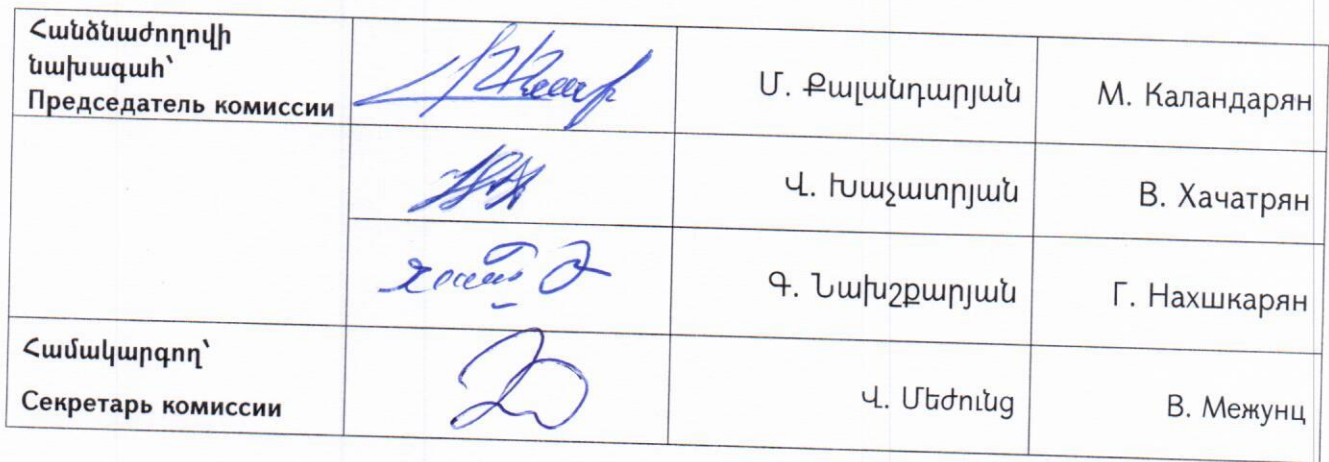 Հանձնաժողովի
նախագահ՝
Председатель комиссии
Մ. Քալանդարյան
М. Каландарян
Վ. Խաչատրյան
В. Хачатрян
Գ. Նախշքարյան
Г. Нахшкарян
Համակարգող՝
Секретарь комиссии
Վ. Մեժունց
В. Межунц